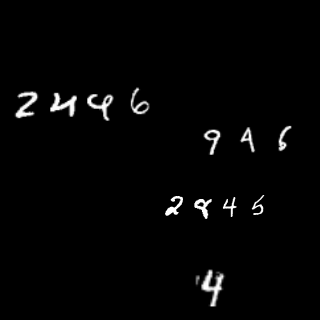 2496
946
2845
4